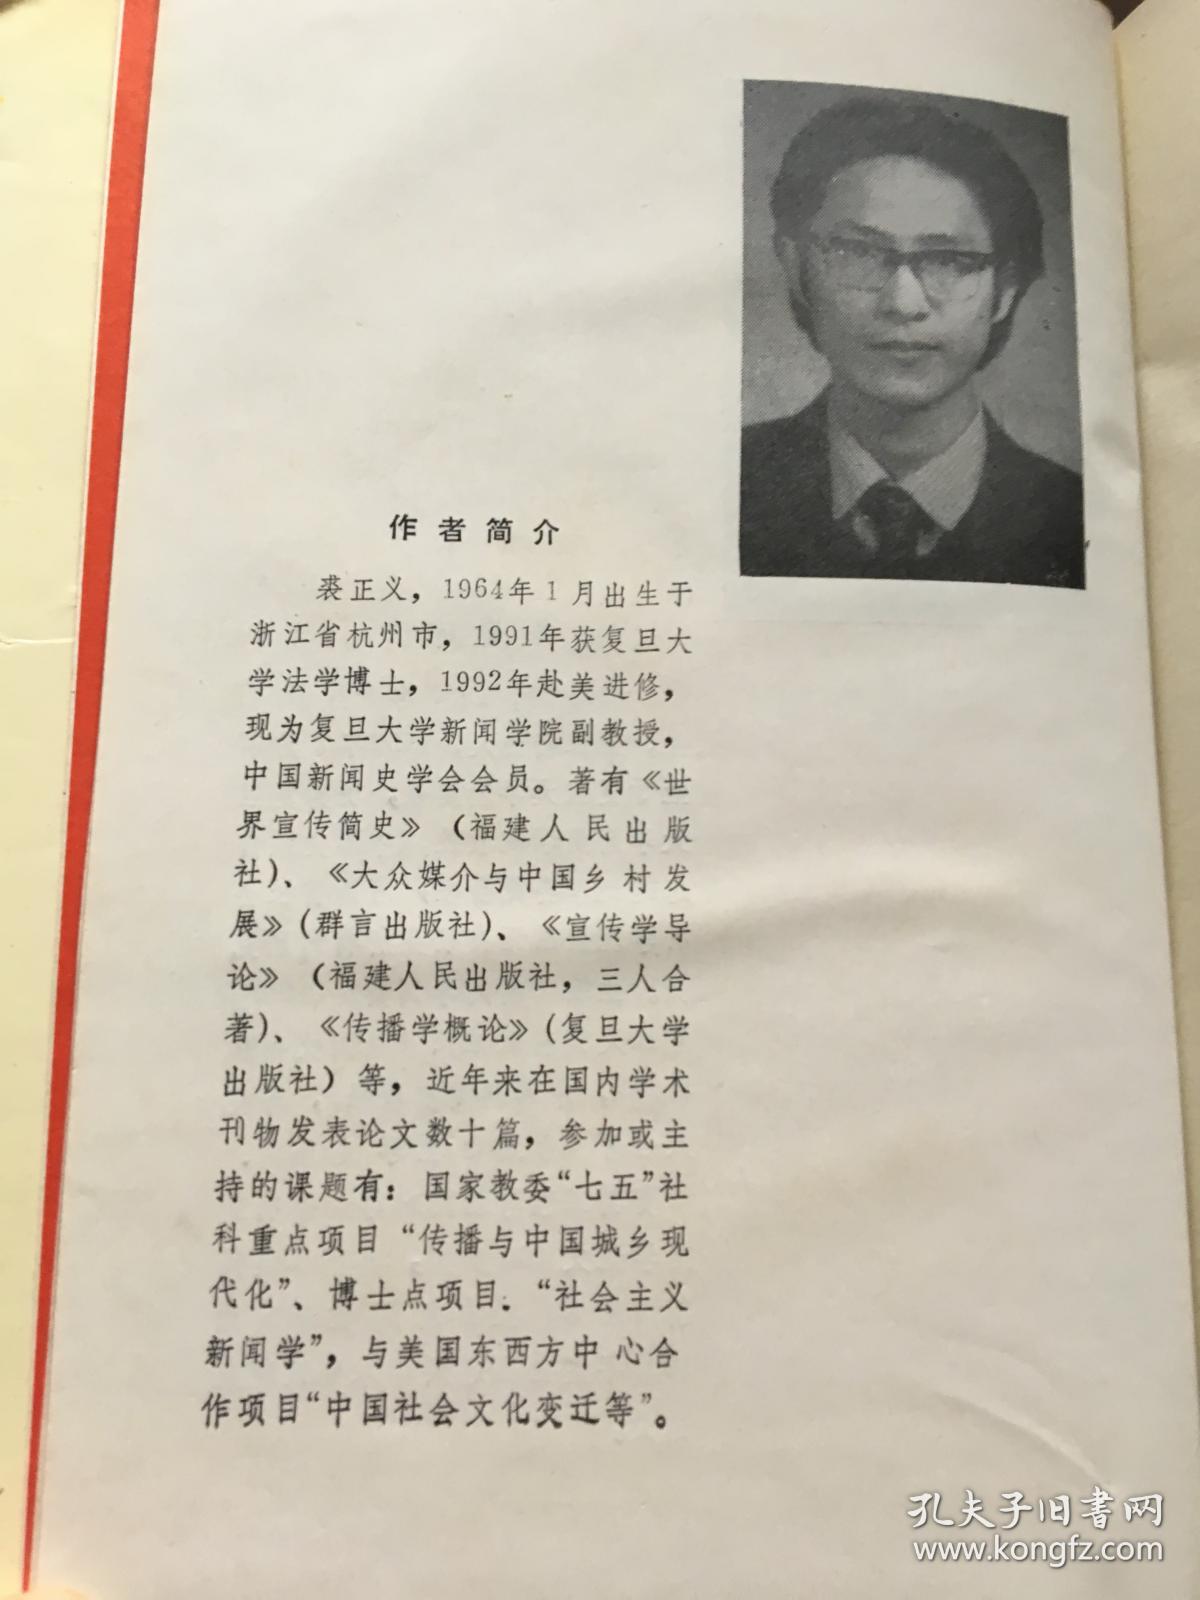 作者简介
裘正义，1964年1月出生于
浙江省杭州市，1991年获复旦大
学法学博士，1992年赴美进修，
现为复旦大学新闻学院副教授，
中国新闻史学会会员。著有《世
界宣传简史》（福建人民出版
社）、《大众媒介与中国乡村发
展》（群言出版社）、《宣传学导
论》（福建人民出版社，三人合
著）、《传播学概论》（复旦大学
出版社）等，近年来在国内学术
刊物发表论文数十篇，参加或主
持的课题有：国家教委“七五”社
科重点项目“传播与中国城乡现
代化”、博士点项目：“社会主义
新闻学”，与美国东西方中心合
作项目“中国社会文化变迁等”。
孔夫子旧书网
www.kongfz.com